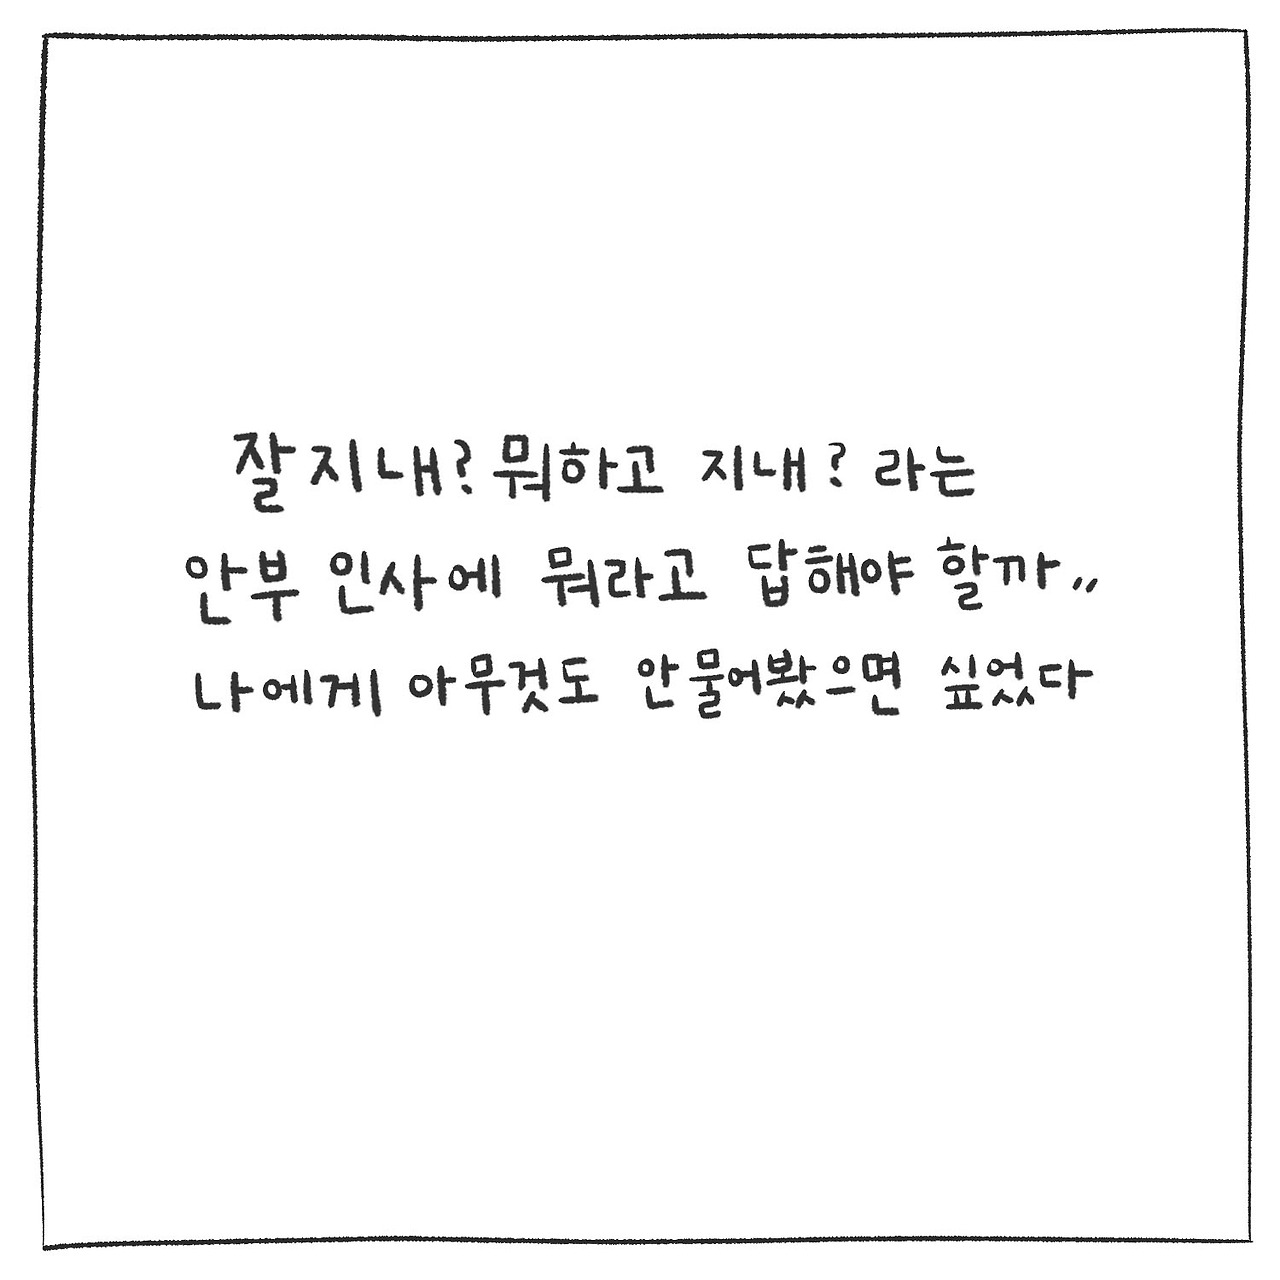 잘지내? 뭐하고 지내? 라는
안부 인사에 뭐라고 답해야 할까,,
나에게 아무것도 안 물어봤으면 싶었다